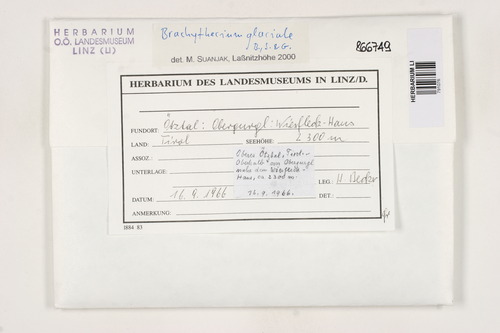 HERBARIUM
O.Ö. LANDESMUSEUM
LINZ (LI)
Brachythecium glaciale
B., S. & G.
det. M. SUANJAK, Laßnitzhöhe 2000
866749
HERBARIUM LI
HERBARIUM DES LANDESMUSEUMS IN LINZ/D.
FUNDORT: Ötztal: Obergurgl: Wiesfleck-Haus
LAND: Tirol SEEHÖHE: 2300 m
ASSOZ.
UNTERLAGE
Oberes Ötztal, Tirol.
Oberhalb von Obergurgl
nahe dem
Haus, ca. 2300 m.
12.9.1966.
LEG.: H. Becker
DATUM: 16.9.1966 DET.:
ANMERKUNG:
I884 83